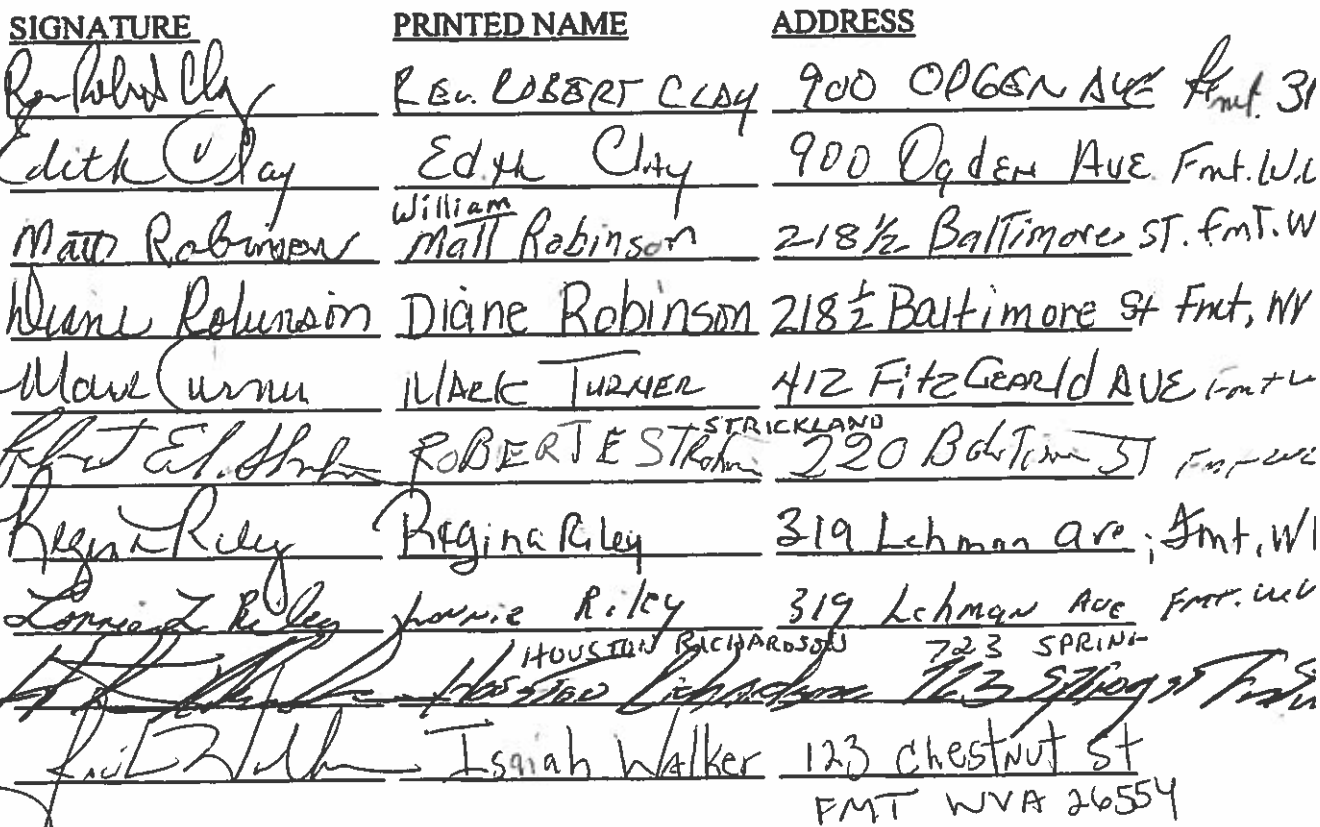 SIGNATURE PRINTED NAME ADDRESS
Rev Robert Clay REV. ROBERT CLAY 900 OPGEN AVE Fmt. 31
Edith Clay Edyth Clay 900 Ogden AVE. Fmt. W.V
William
Matt Robinson Matt Robinson 218 1/2 BalTimore ST. fmT. W
Diane Robinson Diane Robinson 218 1/2 Baltimore St Fmt, WV
Mark Turner MARK TURNER 412 FitzGEARld AVE Fmt W
STRICKLAND
Robert E ROBERT E 220 BalTimore ST Fmt WV
Regina Riley Regina Riley 319 Lehman ave; Fmt, WV
Lonnie L Riley Lonnie Riley 319 Lehman AVE FMT. WV
HOUSTON RICHARDSON 723 SPRING
Houston Richardson 723 Spring ST
Isaiah Walker 123 chestNut St
FMT WVA 26554